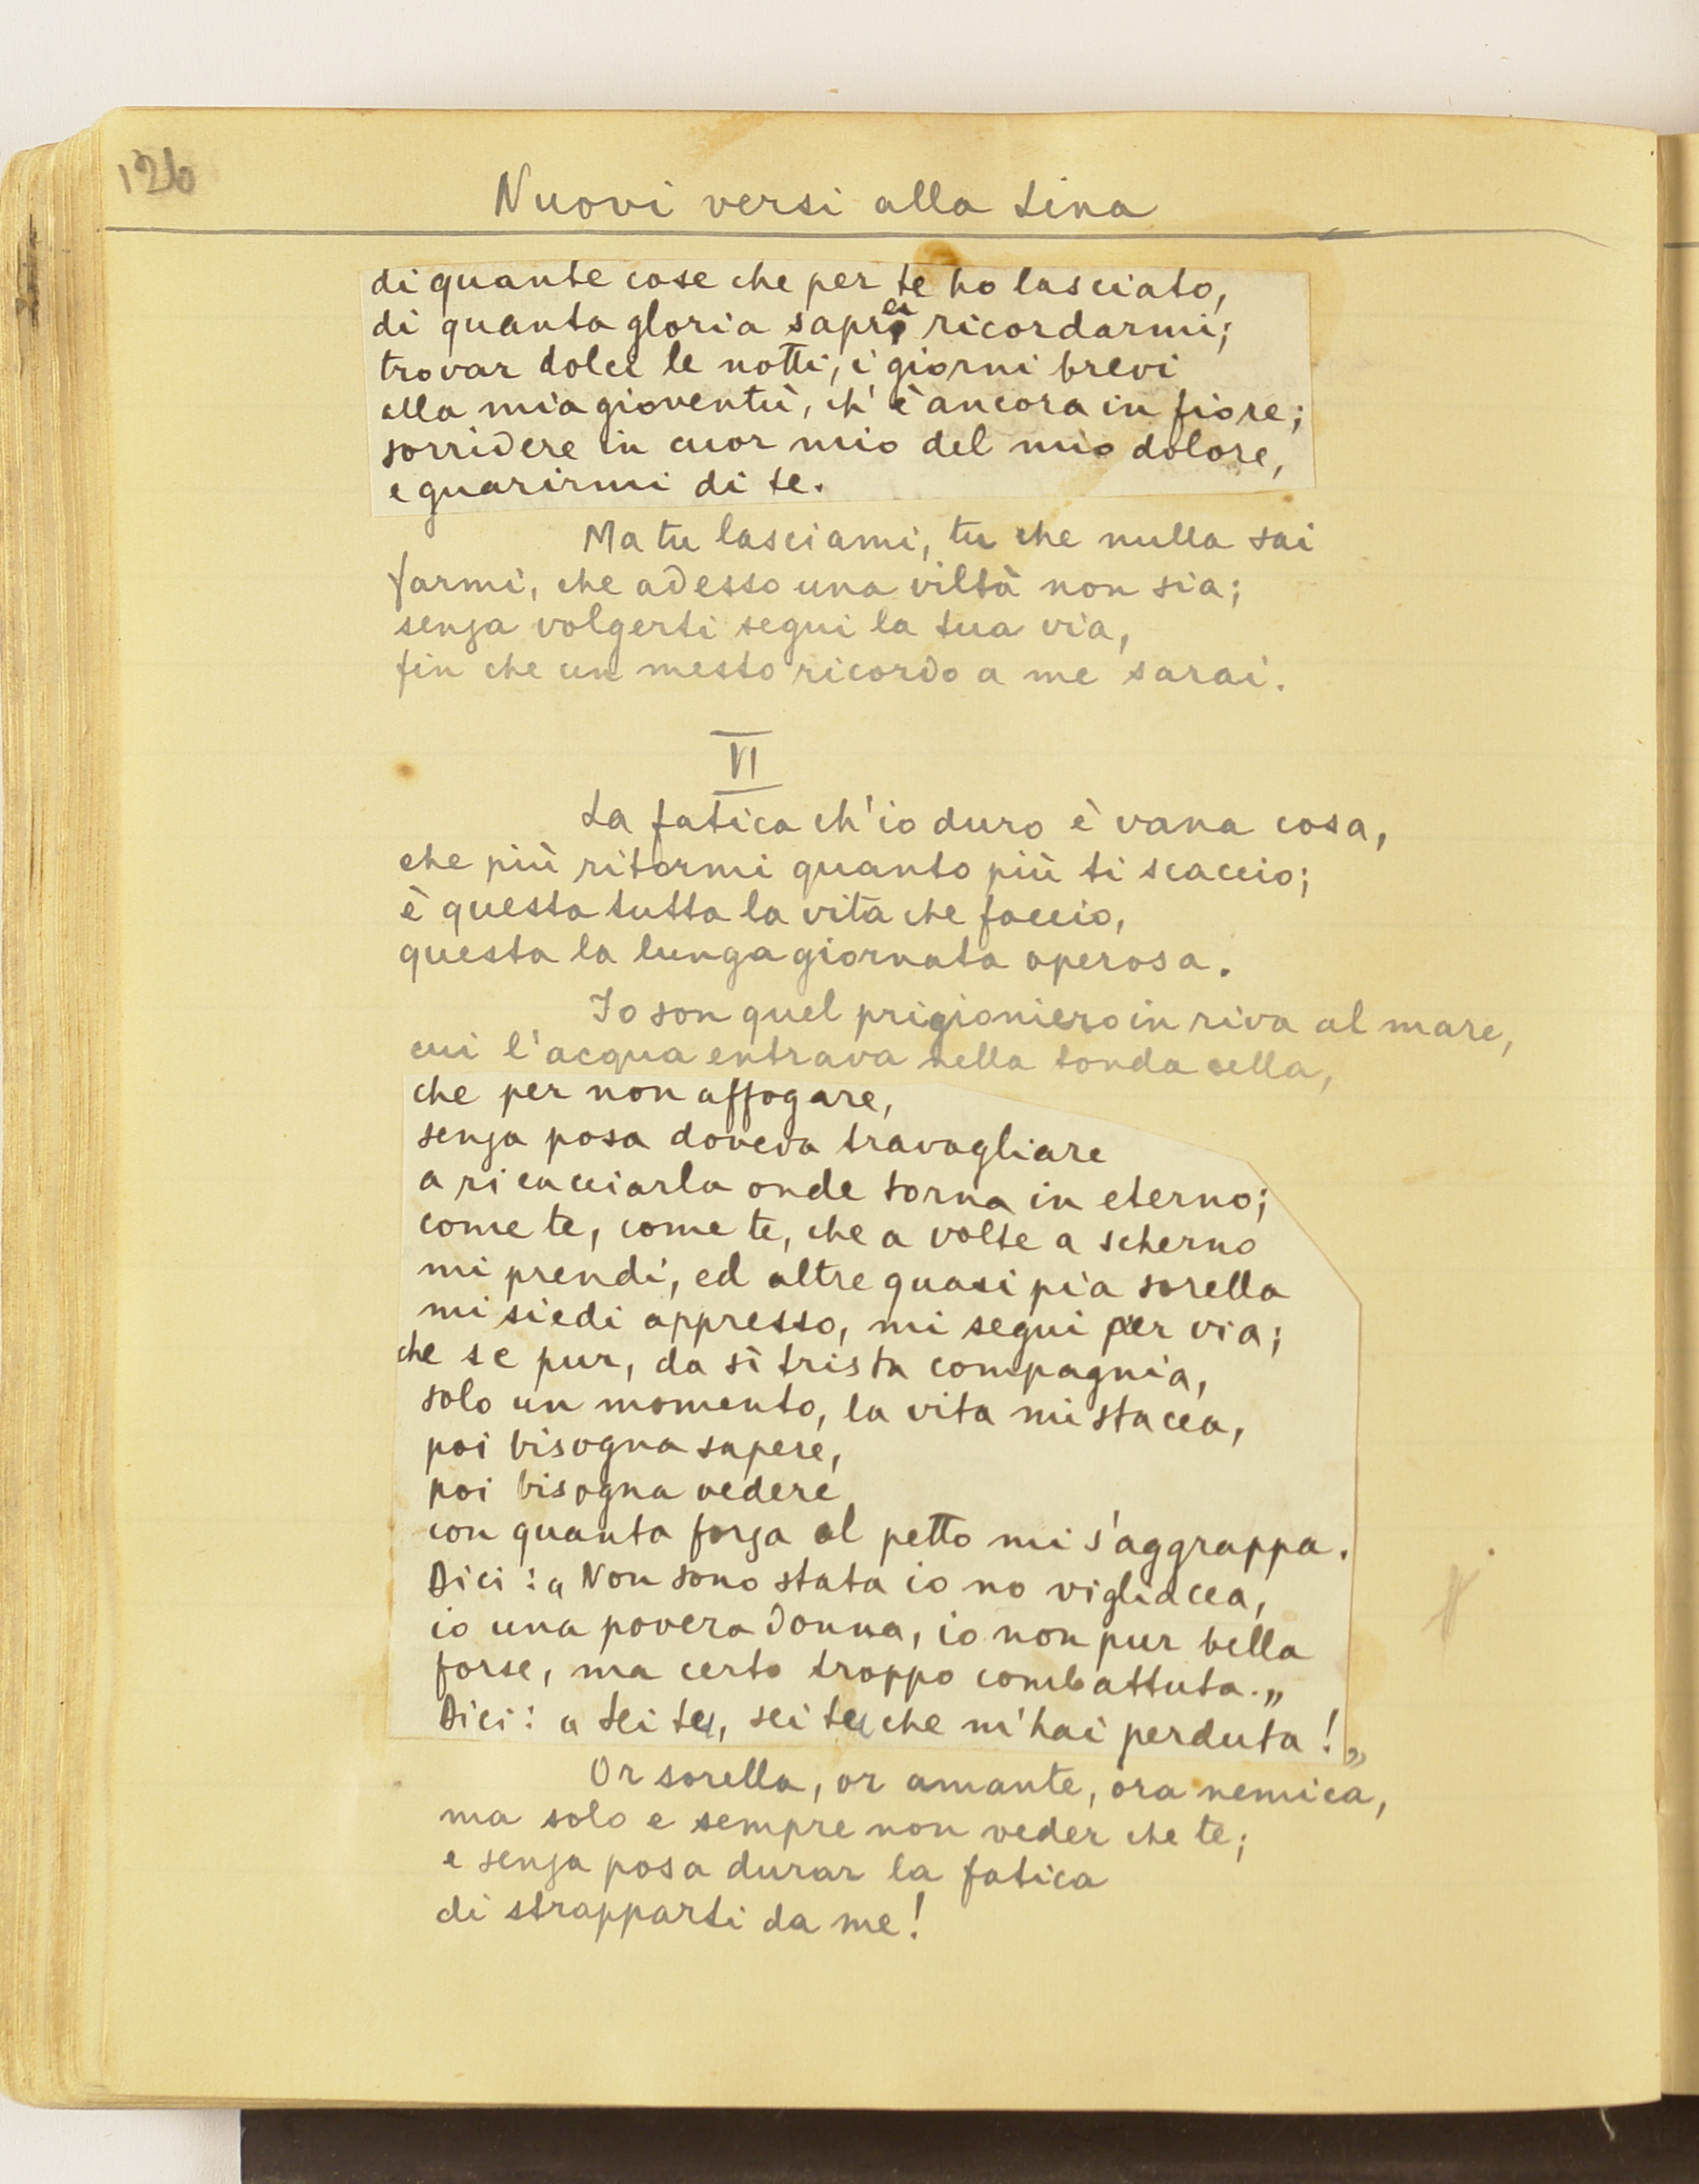 126
Nuovi versi alla Lina
di quante cose che per te ho lasciato,
di quanta gloria saprei ricordarmi;
trovar dolci le notti, i giorni brevi
alla mia gioventù, ch'è ancora in fiore;
sorridere in cuor mio del mio dolore,
e guarirmi di te.
Ma tu lasciami, tu che nulla sai
farmi, che adesso una viltà non sia;
senza volgerti segui la tua via,
fin che un mesto ricordo a me sarai.
VI
La fatica ch'io duro è vana cosa,
che più ritorni quanto più ti scaccio;
è questa tutta la vita che faccio,
questa la lunga giornata operosa.
Io son quel prigioniero in riva al mare,
cui l'acqua entrava nella tonda cella,
che per non affogare,
senza posa doveva travagliare
a ricacciarla onde torna in eterno;
come te, come te, che a volte a scherno
mi prendi, ed altre quasi pia sorella
mi siedi appresso, mi segui per via;
che se pur, da sì trista compagnia,
solo un momento, la vita mi stacca,
poi bisogna sapere,
poi bisogna vedere
con quanta forza al petto mi s'aggrappa.
Dici: „Non sono stata io no vigliacca,
io una povera donna, io non pur bella
forse, ma certo troppo combattuta.„
Dici: „Sei tu, sei tu che m'hai perduta!„
Or sorella, or amante, ora nemica,
ma solo e sempre non veder che te;
e senza posa durar la fatica
di strapparti da me!